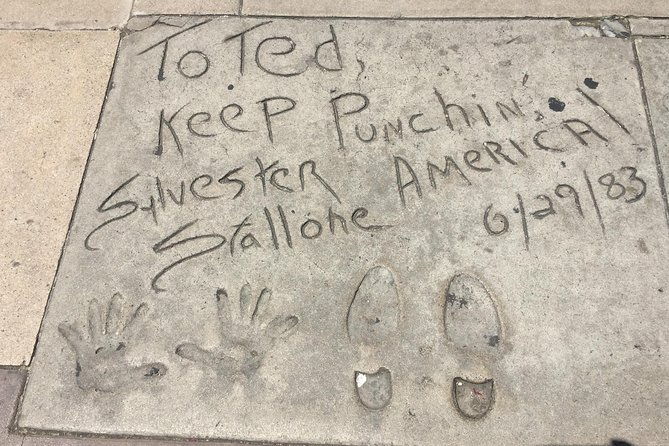 To Ted,
Keep Punchin,
America!
Sylvester
Stallone
6/29/83